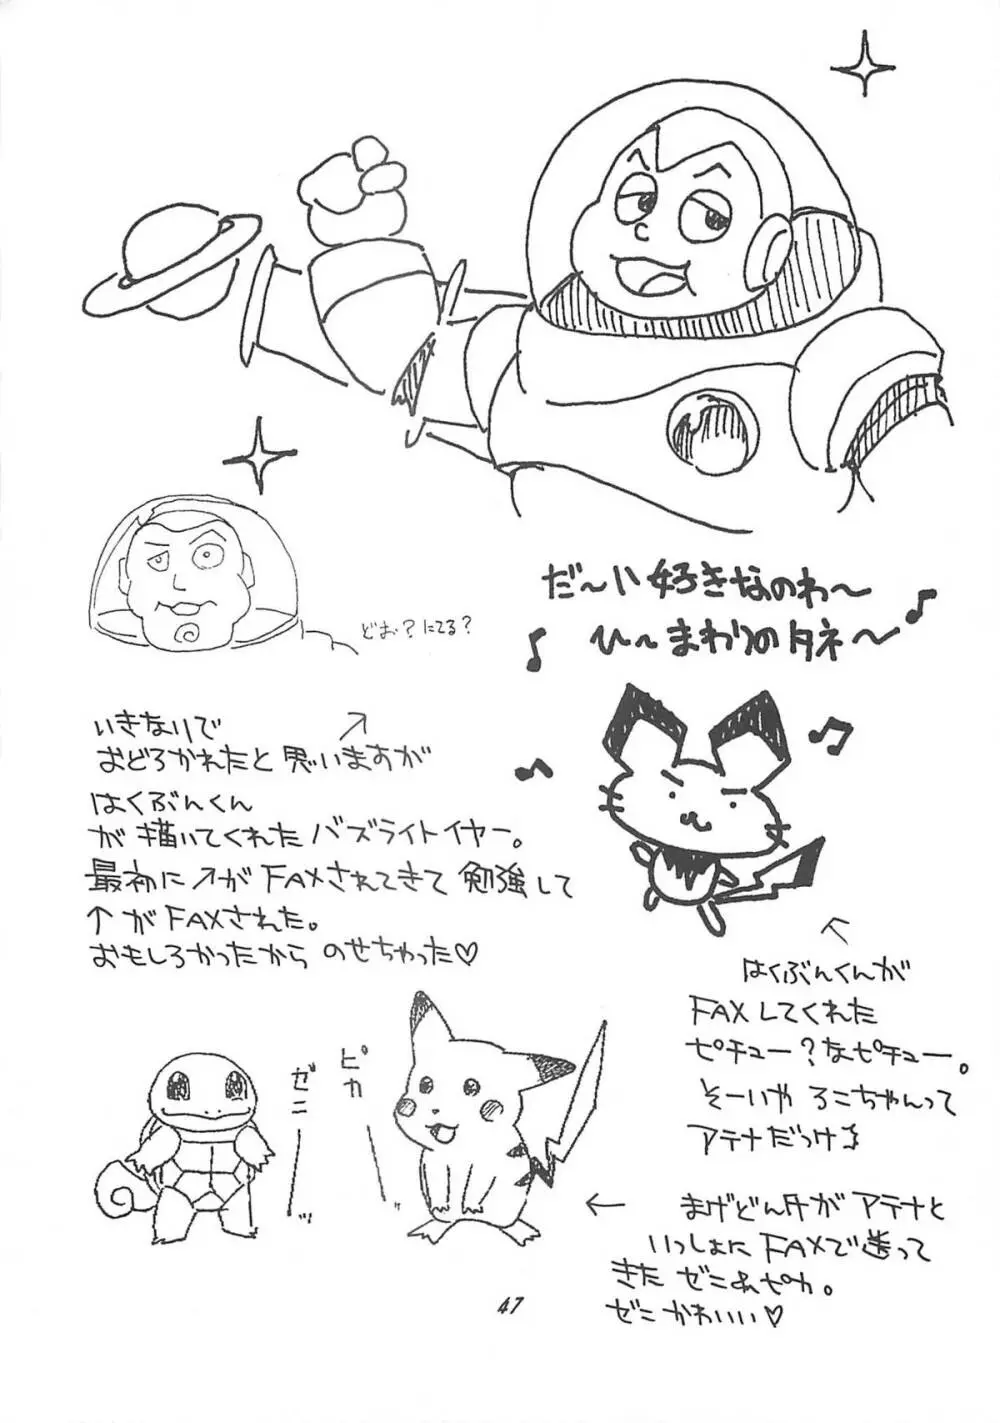 だ〜い好きなのわ〜
ひ〜まわりのタネ〜
どお?にてる?
いきなりで
おどろかれたと思いますが
はくぶんくん
が描いてくれたバズライトイヤー。
最初に↗がFAXされてきて勉強して
↑がFAXされた。
おもしろかったからのせちゃった♡
はくぶんくんが
FAXしてくれた
ピチュー?なピチュー。
そーいやろこちゃんって
アテナだっけ
ゼニ
ピカ
まげどん丼がアテナと
いっしょにFAXで送って
きたゼニ&ピカ。
ゼニかわいい♡
47